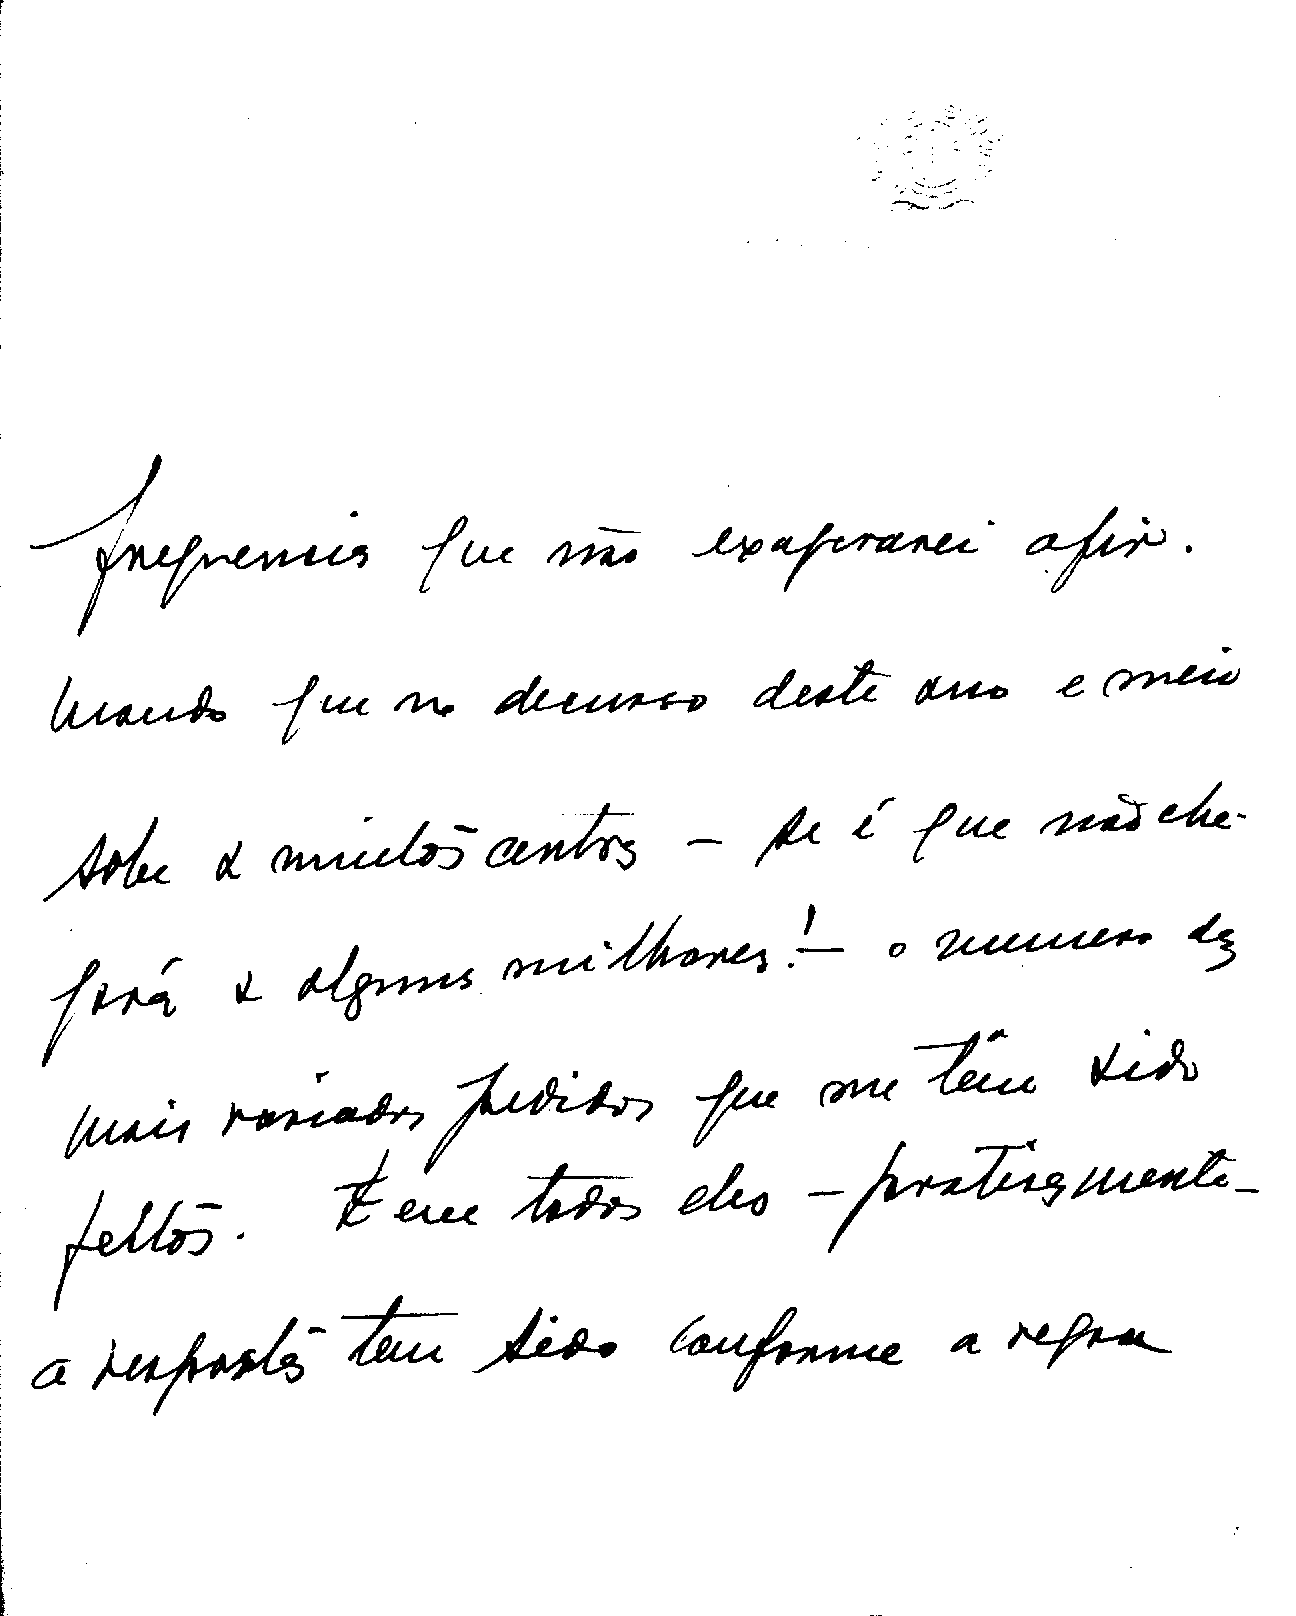 frequencia que não exagerarei afir-
mando que no decurso deste ano e meio
sobe a muitos centos – se é que não che-
gará a alguns milhares! – o numero dos
mais variados pedidos que me têm sido
feitos. E em todos eles – praticamente –
a resposta tem sido conforme a regra